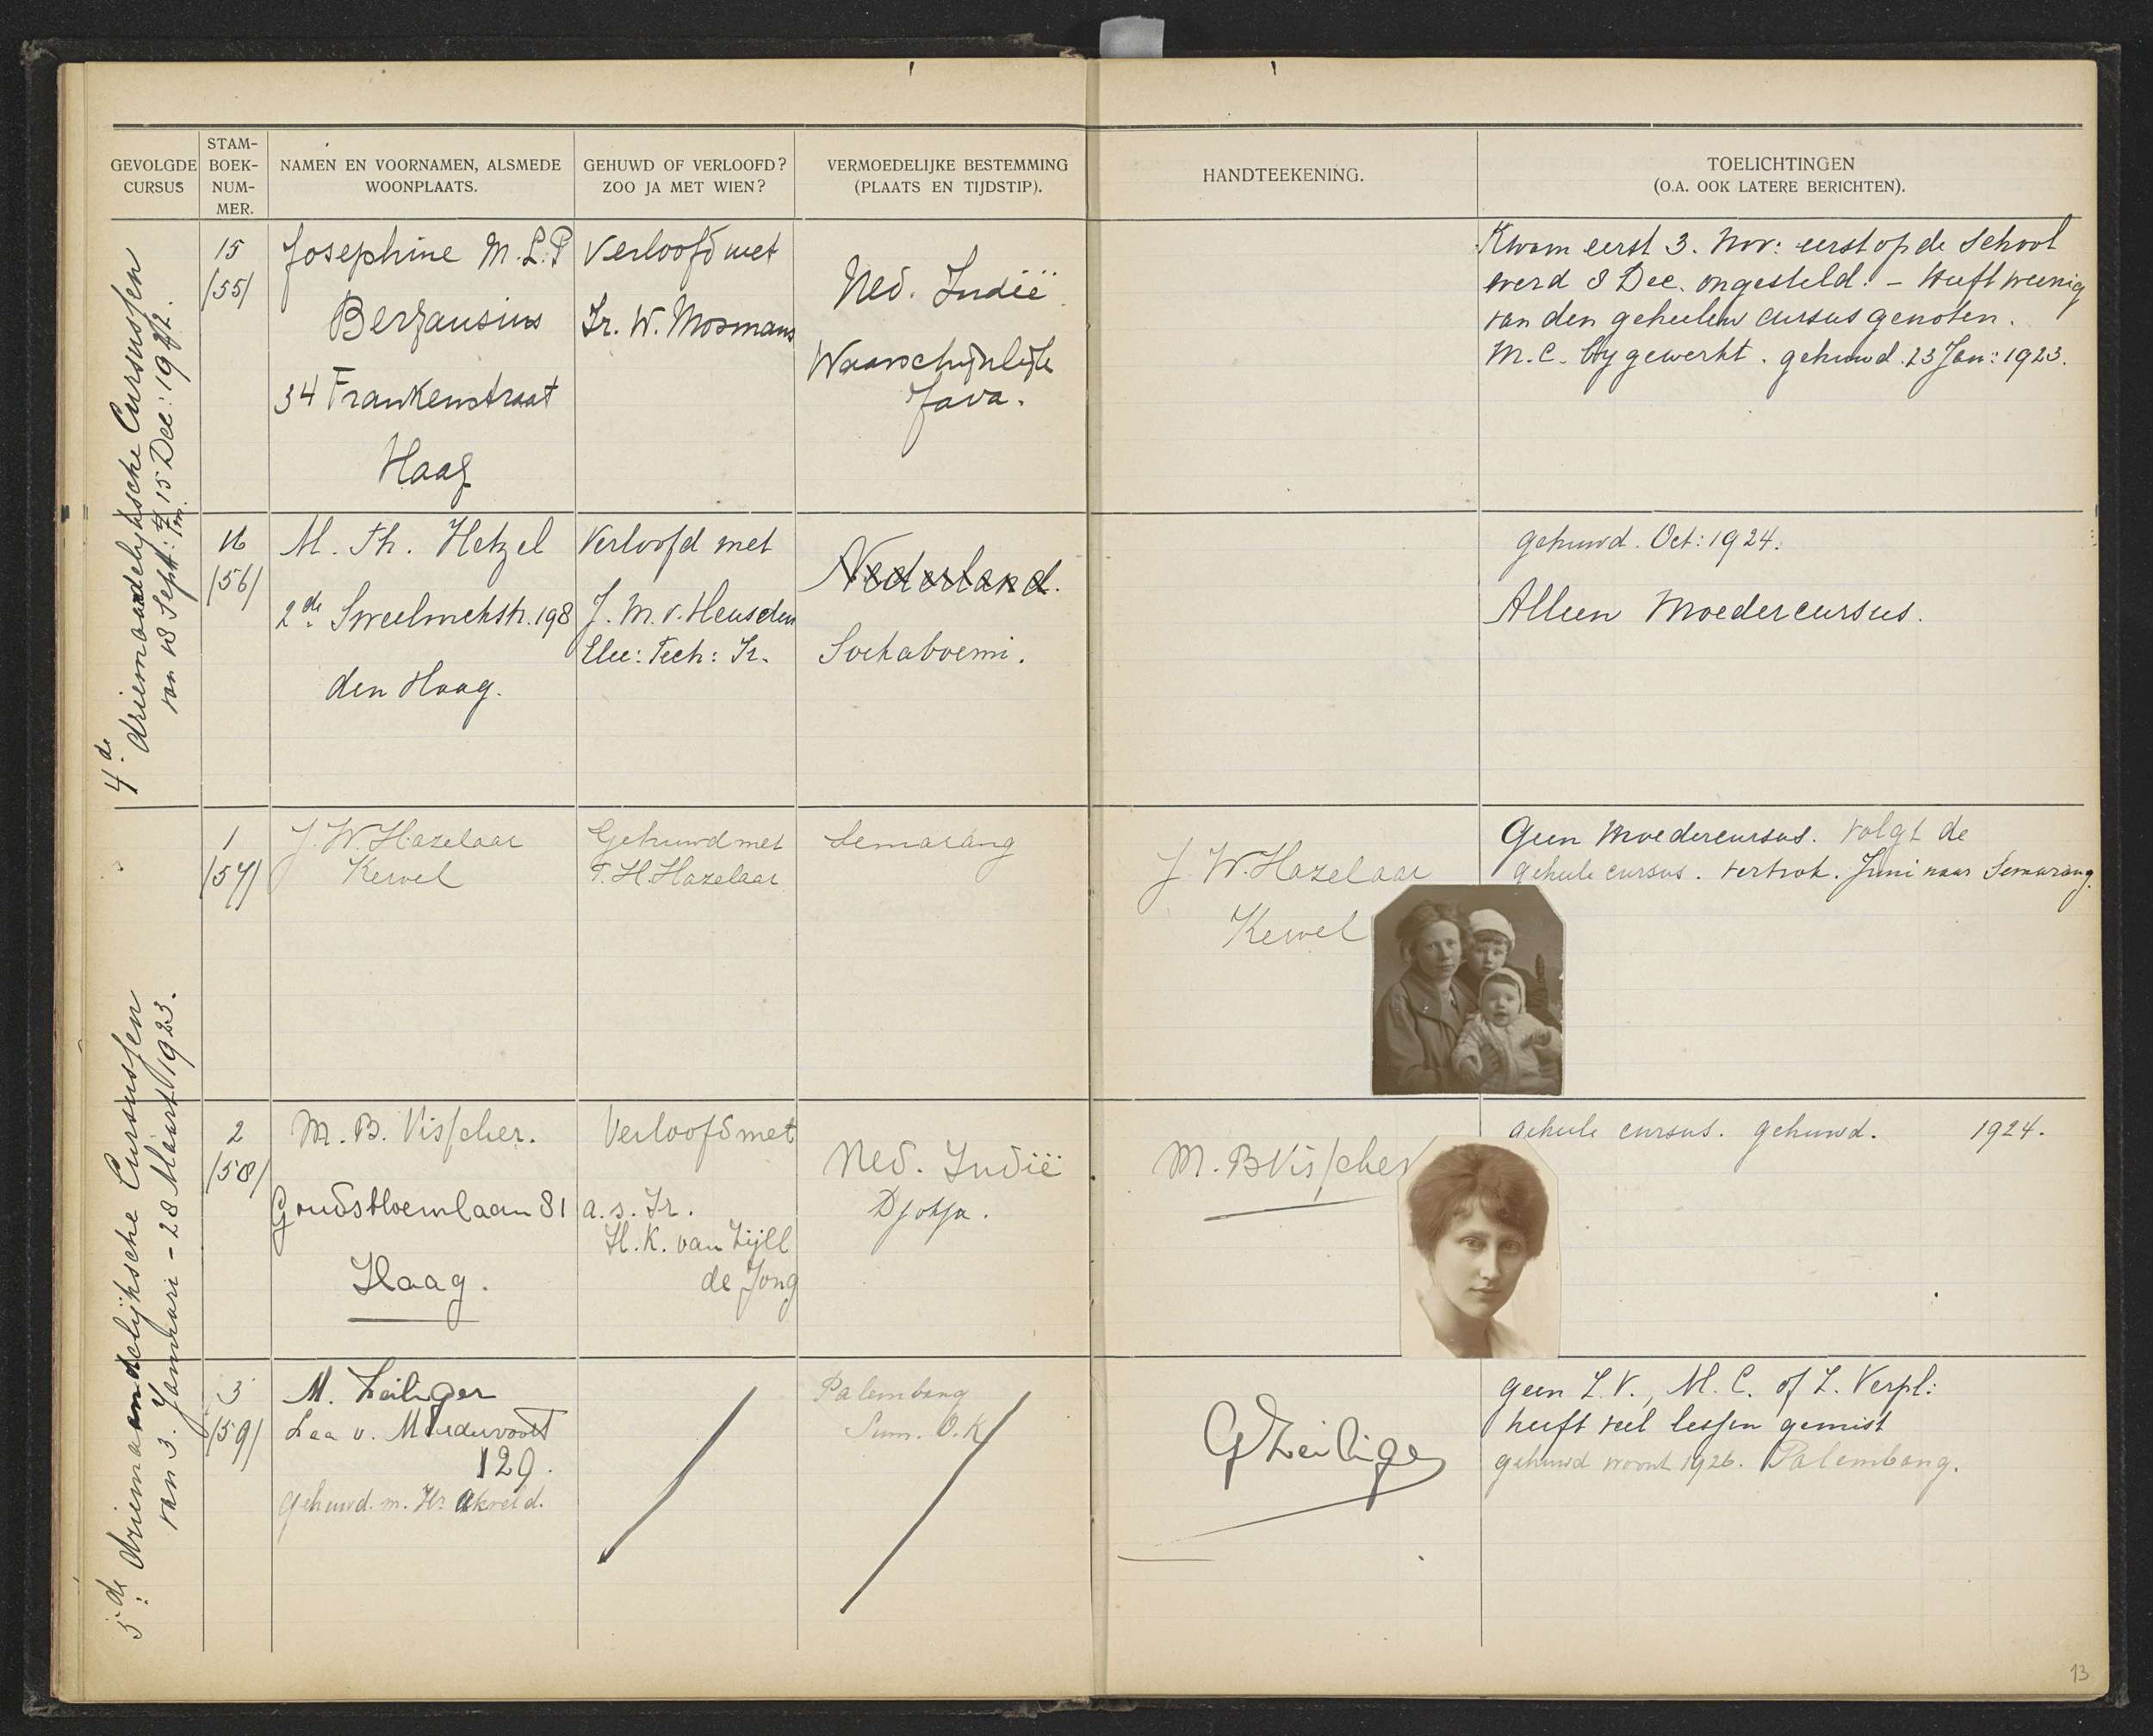 GEVOLGDE CURSUS
STAM-BOEK-NUM-MER.
NAMEN EN VOORNAMEN, ALSMEDE WOONPLAATS.
GEHUWD OF VERLOOFD? ZOO JA MET WIEN?
VERMOEDELIJKE BESTEMMING (PLAATS EN TIJDSTIP).
HANDTEEKENING.
TOELICHTINGEN (O.A. OOK LATERE BERICHTEN).
4de driemaandelijksche Cursussen
van 18 Sept: t/m 15 Dec: 1922.
15
/55/
Josephine M.L.P
Berzausius
34 Frankenstraat
Haag
Verloofd met
Ir. W. Mosmans
Ned. Indië
Waarschijnlijk
Java.
Kwam eerst 3. Nov: eerst op de School
werd 8 Dec. ongesteld. – Heeft weinig
van den geheelen cursus genoten.
M.C. bygewerkt. gehuwd 23 Jan: 1923.
16
/56/
M. Th. Hetzel
2de Sweelinckstr. 198
den Haag.
Verloofd met
J. M. v. Heusden
Elec: Tech: Ir.
Nederland.
Soekaboemi.
gehuwd. Oct: 1924.
Alleen Moedercursus.
5de driemaandelijksche Cursussen
van 3. Januari - 28 Maart 1923.
1
/57/
J. W. Hazelaar
Kervel
Gehuwd met
F. H. Hazelaar
Semarang
J. W. Hazelaar
Kervel
Geen Moedercursus. volgt de
geheele cursus. vertrok. Juni naar Semarang.
2
/58/
M. B. Visscher.
Goudsbloemlaan 81
Haag.
Verloofd met
a.s. Ir.
H. K. van Zijll
de Jong
Ned. Indië
Djokja.
M. B Visscher
geheele cursus. gehuwd. 1924.
3
/59/
M. Zeiliger
Laa v. Meerdervoort
129.
gehuwd. m. Hr. Akveld.
Palembang
Sum. O.K
G Zeiliger
geen Z.V., M.C. of Z. Verpl:
heeft veel lessen gemist
gehuwd woont 1926. Palembang.
13